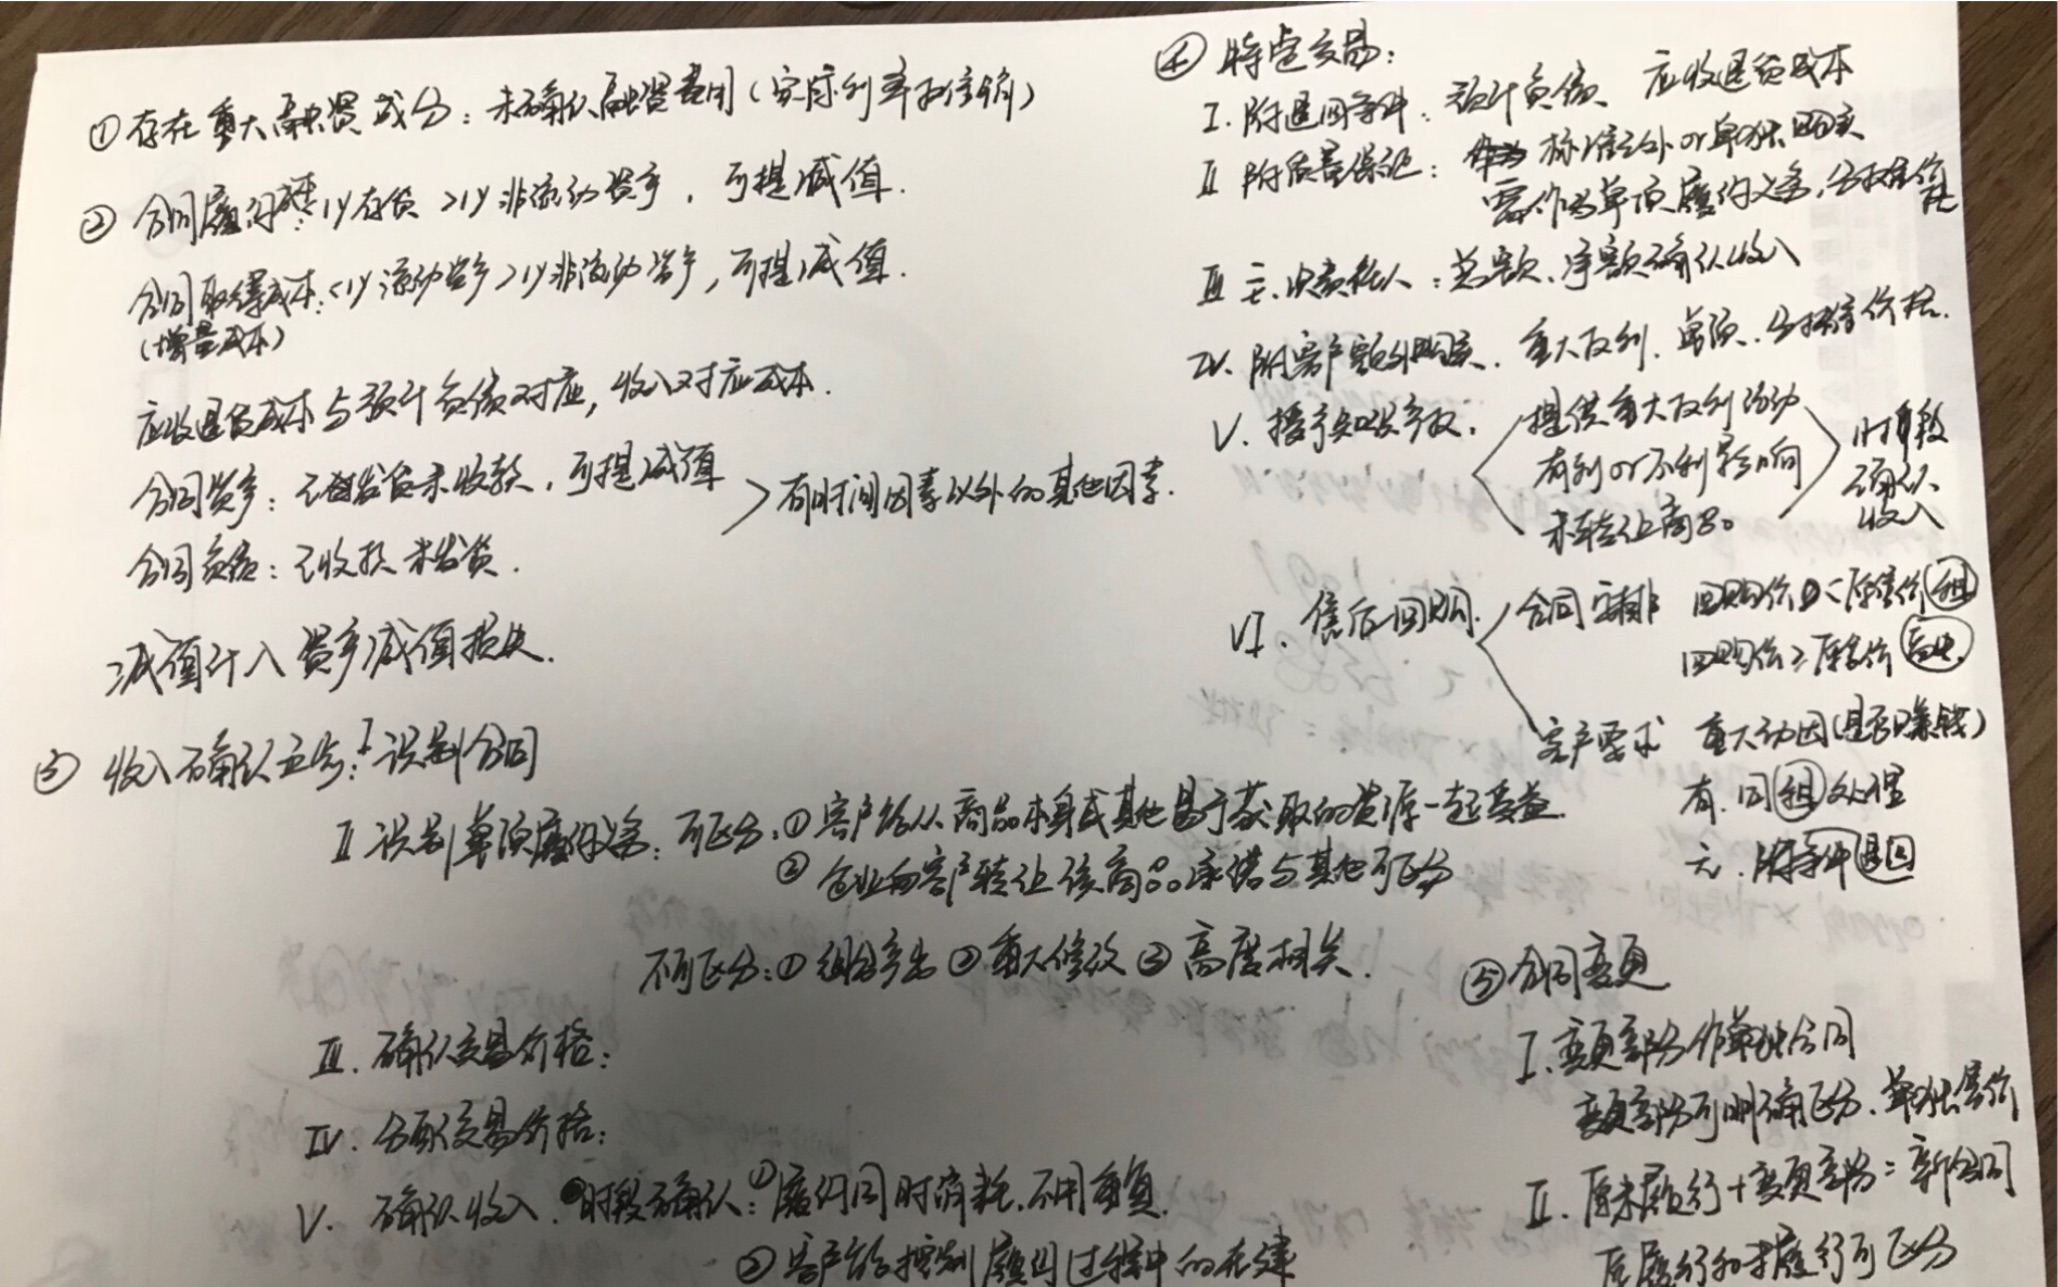 ①存在重大融资成分：未确认融资费用（实际利率折价摊）
② 合同履约成本：1y存货 >1y非流动资产，可提减值.
合同取得成本：<1y流动资产>1y非流动资产，可提减值.
（增量成本）
应收退货成本与预计负债对应，收入对应成本.
合同资产：已发货未收款，可提减值
>有时间因素以外的其他因素.
合同负债：已收款未发货.
减值计入资产减值损失.
③ 收入确认五步：I 识别合同
II 识别单项履约义务：可区分：①客户能从商品本身或其他易于获取的资源一起受益.
② 企业向客户转让该商品承诺与其他可区分
不可区分：①组合产出②重大修改③高度相关.
III. 确认交易价格：
IV. 分配交易价格：
V. 确认收入. 时段确认：①履约同时消耗.不用重复.
②客户能控制履约过程中的在建
④ 特定交易：
I. 附退回条件：预计负债、应收退货成本
II 附质量保证：标准之外or单独购买
需作为单项履约义务，分摊价格
III 主.次责任人：总额、净额确认收入
IV. 附客户额外购买. 重大权利. 单项. 分摊价格.
V. 授予知识产权.
提供重大权利活动
有利or不利影响
未转让商品。
时段
确认
收入
VI. 售后回购. 合同安排 回购价<原售价 租
回购价≥原售价
客户要求 重大动因（是否赚钱）
有. 同租处理
无. 附条件退回
⑤合同变更
I. 变更部分作单独合同
变更部分可明确区分、单独售价
II. 原未履行+变更部分=新合同
原履行和未履行可区分